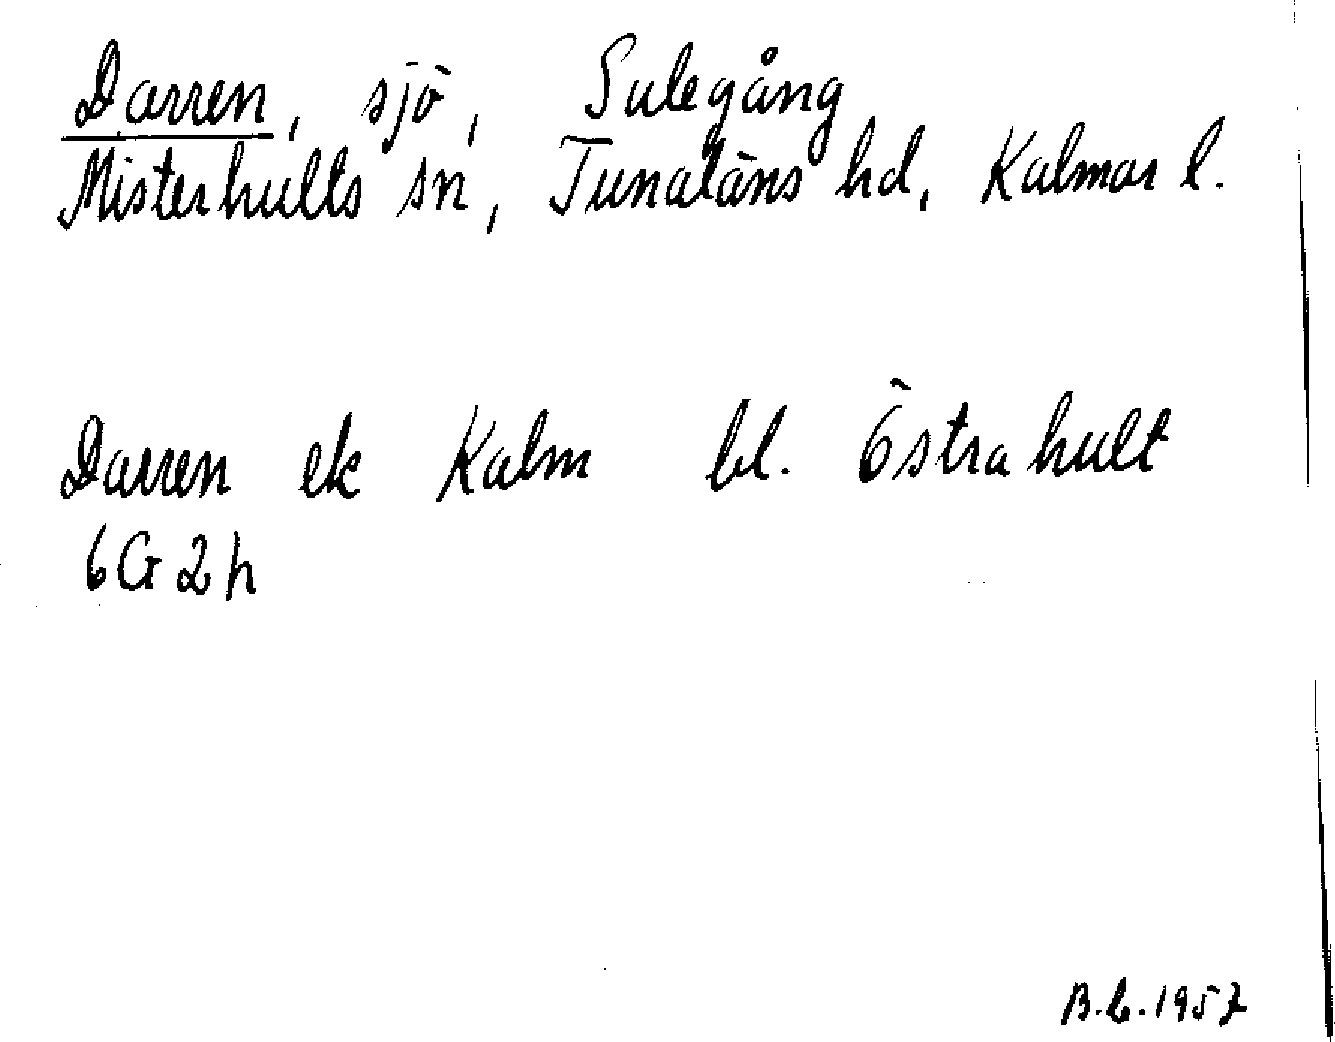 Darren, sjö, Sulegång
Misterhults sn, Tunaläns hd, Kalmar l.
Darren ek Kalm bl. Östrahult
6G2h
B.L. 1957